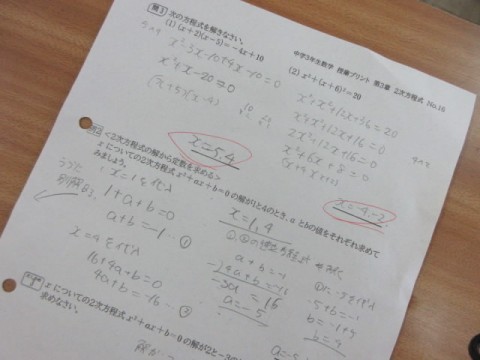 中学3年生数学 授業プリント 第3章 2次方程式 No.16
問3 次の方程式を解きなさい。
(1) (x+2)(x-5)=-4x+10
x²-3x-10+4x-10=0
x²+x-20=0
(x+5)(x-4)
x=5,4
(2) x²+(x+6)²=20
x²+x²+12x+36=20
2x²+12x+16=0
x²+6x+8=0
x=-4,-2
<2次方程式の解から定数を求める>
xについての2次方程式 x²+ax+b=0 の解が1と4のとき、aとbの値をそれぞれ求めて
みましょう。
x=1を代入
1+a+b=0
a+b=-1…①
x=4を代入
16+4a+b=0
4a+b=-16…②
x=1,4
a+b=-1
-)4a+b=-16
a=-5
-5+b=-1
b=-1+5
b=4
xについての2次方程式 x²+ax+b=0 の解が2と-3の
求めなさい。